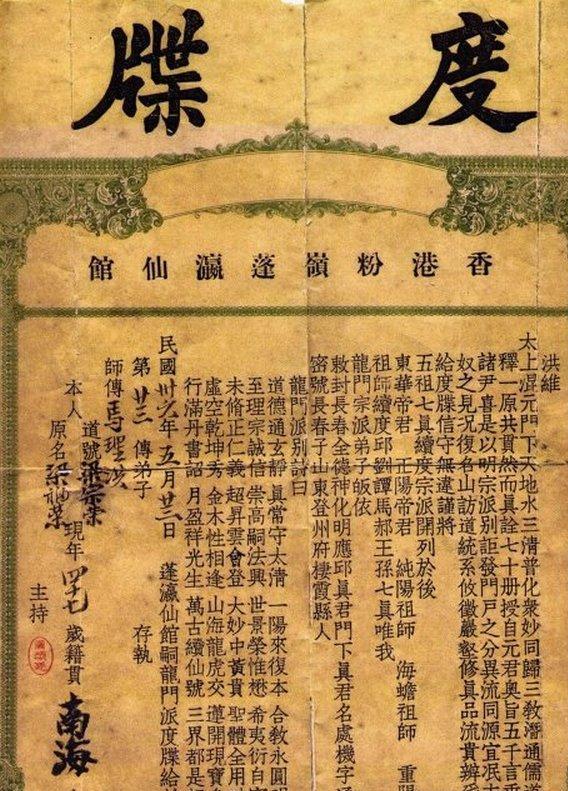 度牒
香港粉嶺蓬瀛仙館
洪維
太上混元門下天地水三清普化衆妙同歸三教潛通儒道
釋一原共貫然而眞詮七十册授自元君奧旨五千言
諸尹喜是以明宗派別詎發門戸之分異流同源宜泯
奴之見況復名山訪道統系攸徵嚴壑修眞品流貴辨
給度牒信守無違謹將
五祖七眞續度宗派開列於後
東華帝君 正陽帝君 純陽祖師 海蟾祖師 重陽
祖師續度邱劉譚馬郝王孫七眞唯我
龍門宗派弟子皈依
敕封長春全德神化明應邱眞君門下眞君名處機字通
密號長春子山東登州府棲霞縣人
龍門派別詩曰
道德通玄靜 眞常守太清 一陽來復本 合敎永圓
至理宗誠信 崇高嗣法興 世景榮惟懋 希夷衍自
未脩正仁義 超昇雲會登 大妙中黃貴 聖體全用
虛空乾坤秀 金木性相逢 山海龍虎交 蓮開現寶
行滿丹書詔 月盈祥光生 萬古續仙號 三界都是
民國卅六年五月廿三日 蓬瀛仙館嗣龍門派度牒給
第廿三傳弟子 存執
師傳
道號梁宗榮
本人
原名梁福榮
現年四十七歲籍貫南海
主持